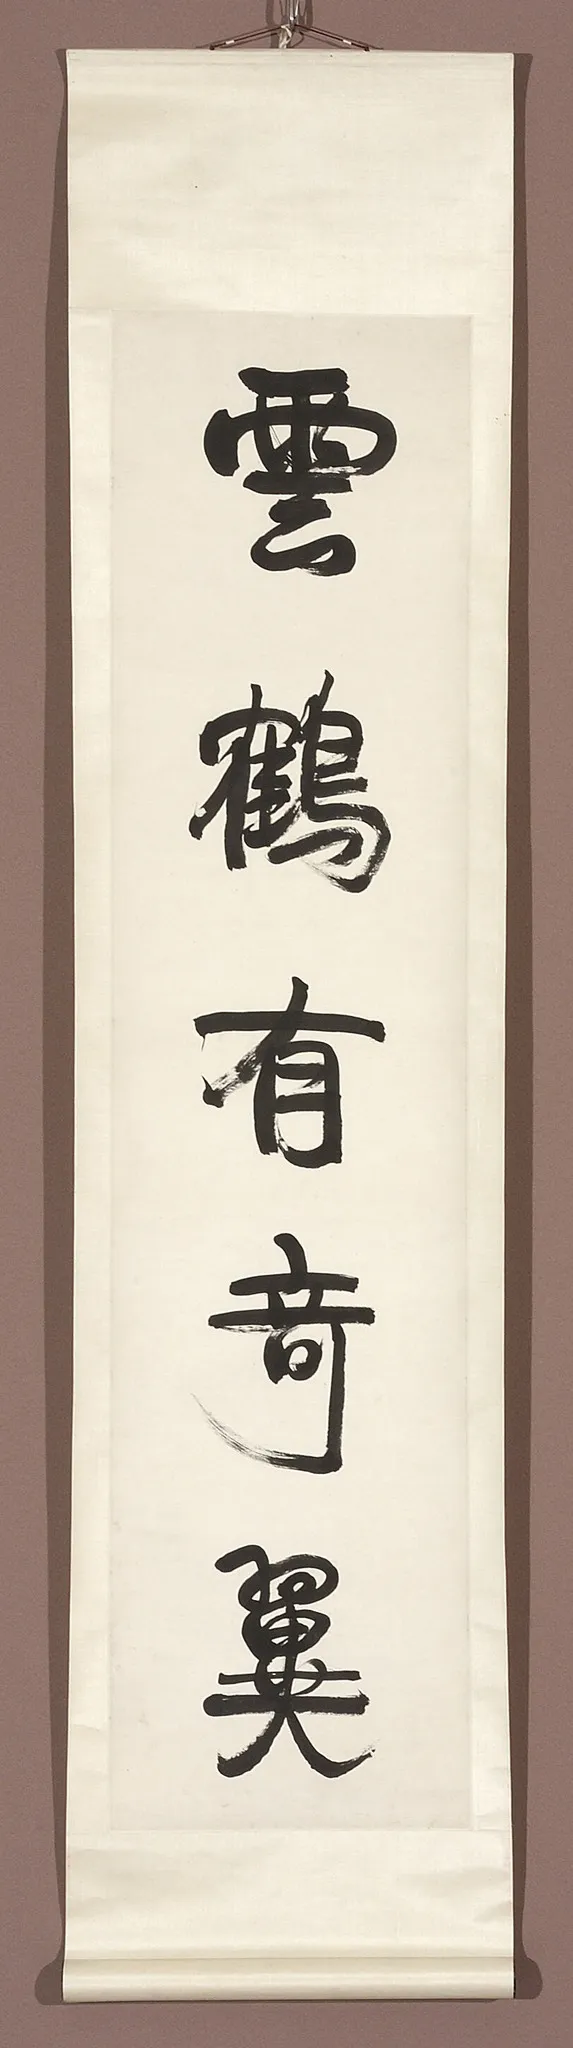 雲鶴有奇翼